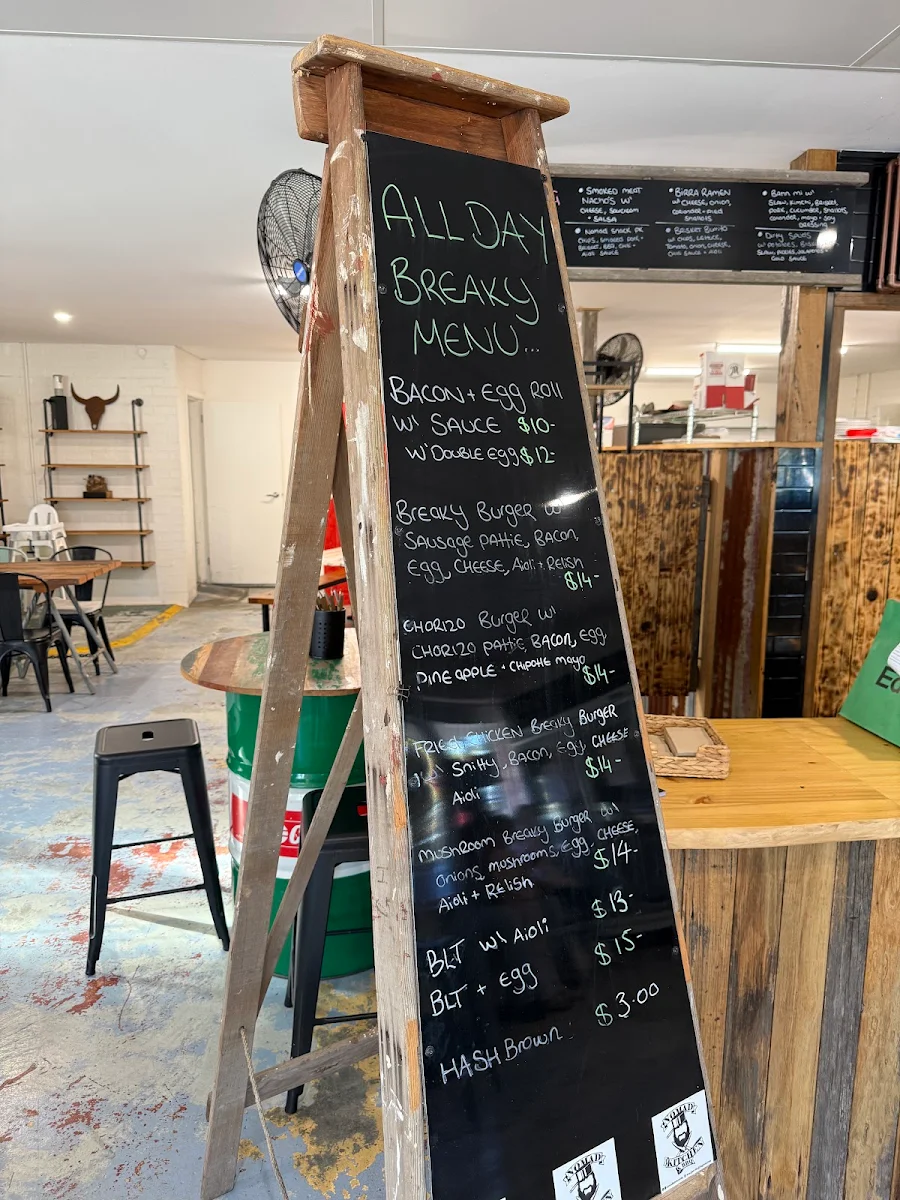 ALL DAY
BREAKY
MENU...
BACON + EGG ROLL
W' SAUCE $10-
W' DOUBLE EGG $12-
BREAKY BURGER W'
SAUSAGE PATTIE, BACON,
EGG, CHEESE, Aioli + RELISH
$14-
CHORIZO BURGER W'
CHORIZO PATTIE, BACON, EGG,
PINEAPPLE + CHIPOTLE MAYO
$14-
FRIED CHICKEN BREAKY BURGER
W' Snitty, BACON, EGG, CHEESE
Aioli $14-
MUSHROOM BREAKY BURGER W'
Onions, mushrooms, EGG, CHEESE,
Aioli + RELISH $14-
BLT W' Aioli $13-
BLT + EGG $15-
HASH BROWN $3.00
NOMAD
KITCHEN
BBQ
NOMAD
• SMOKED MEAT
NACHO'S W'
CHEESE, SOURCREAM
+ SALSA
• NOMAD SNACK PK
CHIPS, SMOKED PORK +
BRISKET, BBQ, CHILI +
AIOLI SAUCE
• BIRRA RAMEN
W' CHEESE, ONION,
CORIANDER + FRIED
SHALLOTS
• BRISKET BURITO
W' CHIPS, LETTUCE,
TOMATO, ONION, CHEESE,
• BANH MI W'
SLAW, KIMCHI, BRISKET,
PORK, CUCUMBER, SHALLOTS,
CORIANDER, MAYO + SOY
DRESSING
• DIRTY SPUDS
W' POTATOES,
SLAW, PICKLES, JALAPENOS +
SAUCE